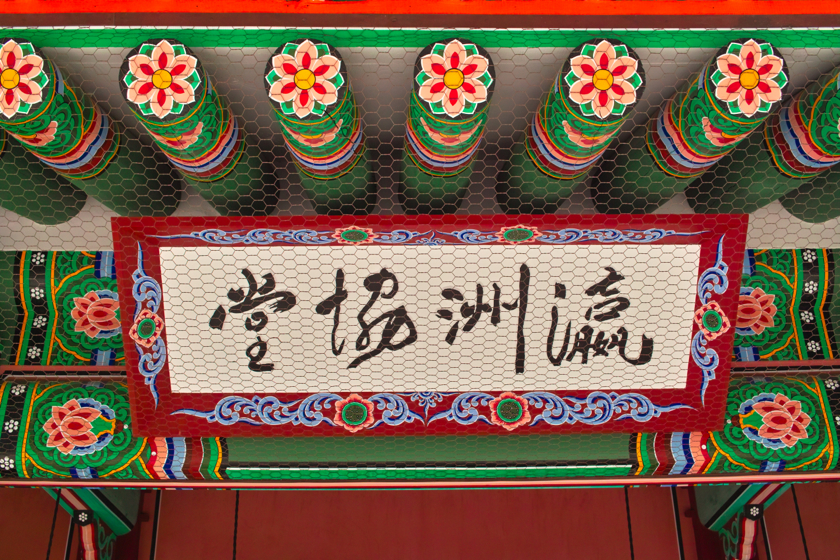 瀛洲協堂